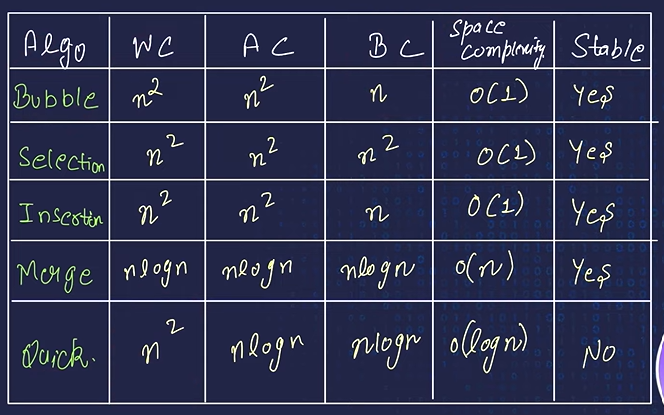 Algo WC AC BC Space Complexity Stable
Bubble n² n² n O(1) Yes
Selection n² n² n² O(1) Yes
Insertion n² n² n O(1) Yes
Merge nlogn nlogn nlogn O(n) Yes
Quick. n² nlogn nlogn O(logn) NO